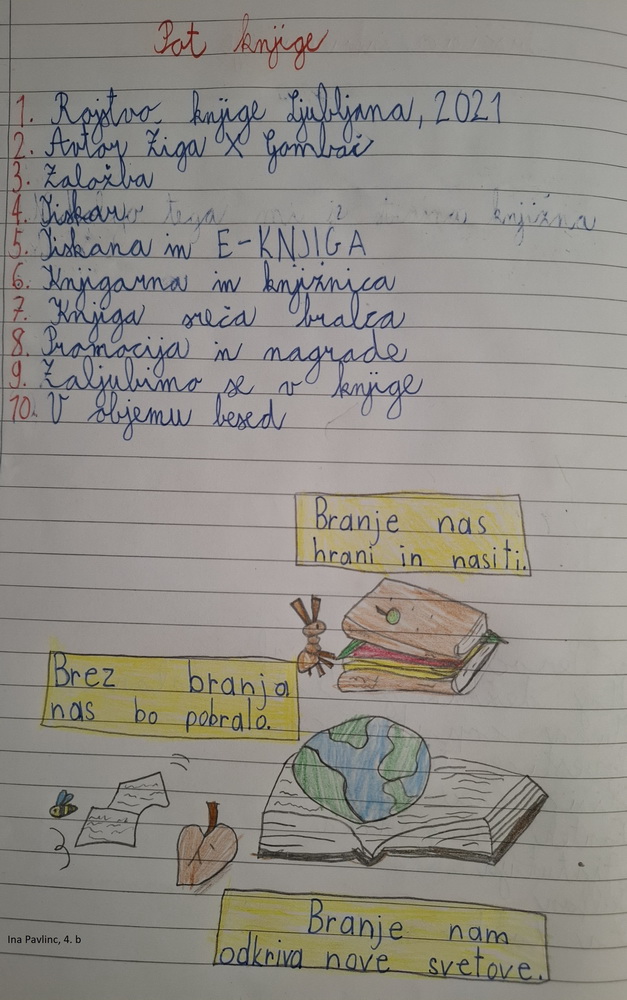 Pot knjige
1. Rojstvo knjige Ljubljana, 2021
2. Avtor Žiga X Gombač
3. Založba
4. Tiskar
5. Tiskana in E-KNJIGA
6. Knjigarna in knjižnica
7. Knjiga sreča bralca
8. Promocija in nagrade
9. Zaljubimo se v knjige
10. V objemu besed
Branje nas
hrani in nasiti.
Brez branja
nas bo pobralo.
Branje nam
odkriva nove svetove.
Ina Pavlinc, 4. b